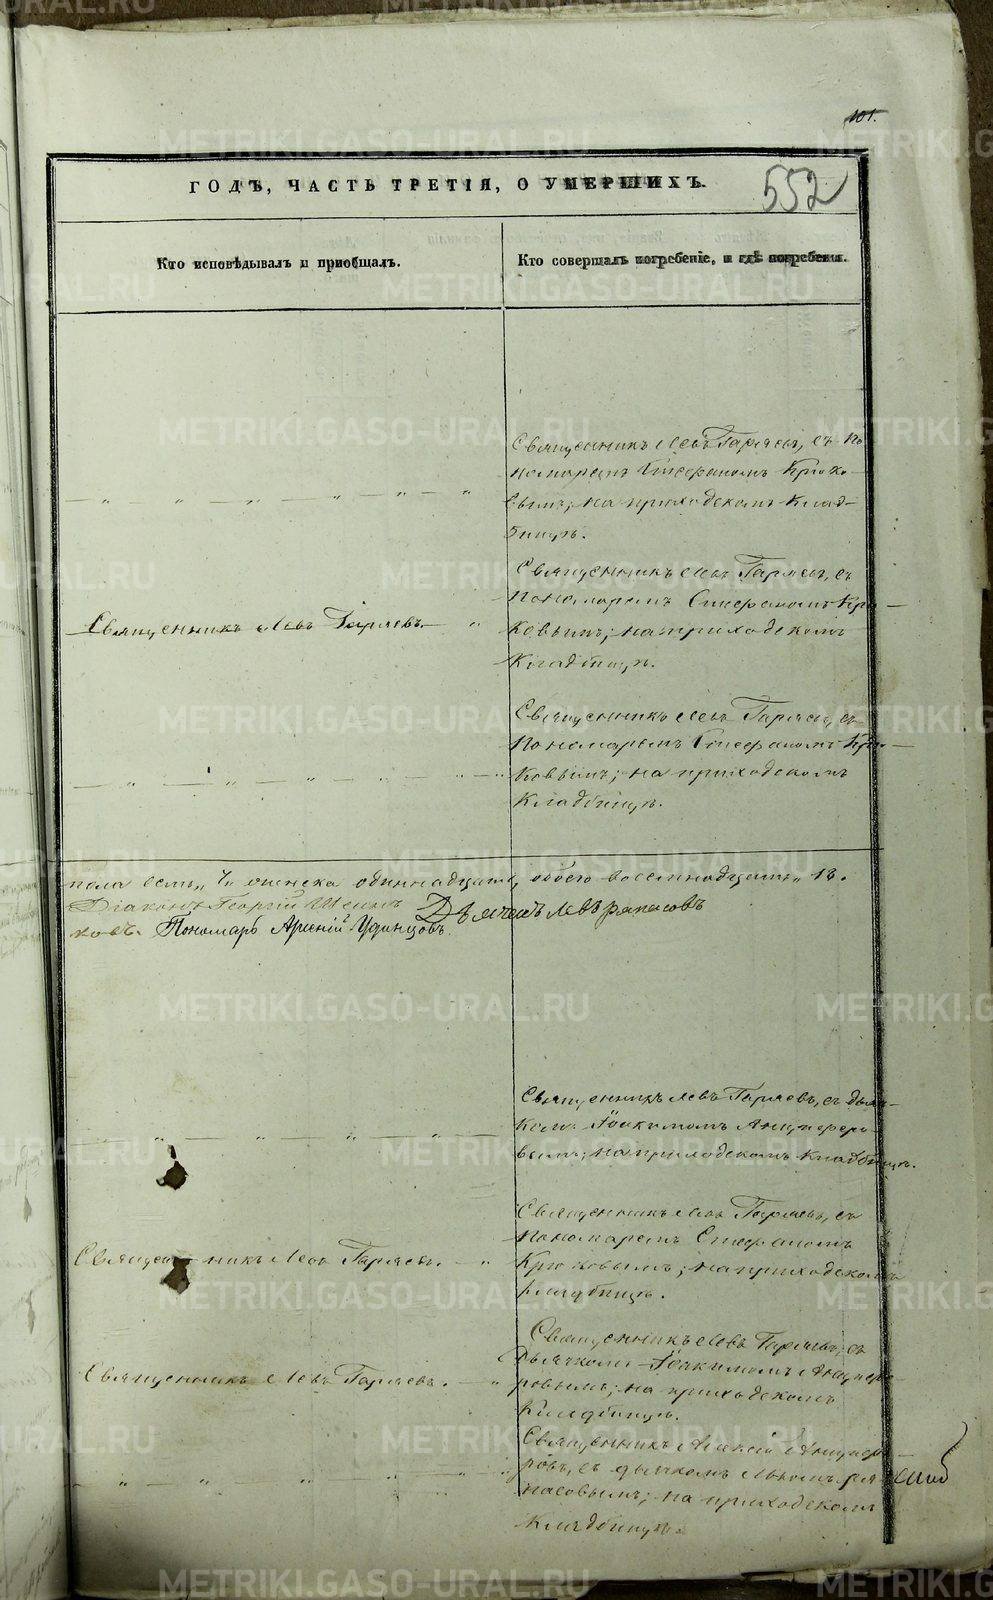 101.
552
ГОДЪ, ЧАСТЬ ТРЕТІЯ, О УМЕРШИХЪ.
Кто исповѣдывалъ и пріобщалъ.
Кто совершалъ погребеніе, и гдѣ погребены.
Священникъ Левъ Гаряевъ, съ По
номаремъ Стефаномъ Крюко-
вымъ; на приходскомъ клад-
бищѣ.
Священникъ Левъ Гаряевъ.
Священникъ Левъ Гаряевъ, съ
Пономаремъ Стефаномъ Крю-
ковымъ; на приходскомъ
кладбищѣ.
Священникъ Левъ Гаряевъ, съ
Пономаремъ Стефаномъ Крю-
ковымъ; на приходскомъ
кладбищѣ.
пола семь, 7. женска одиннадцать, обоего восемнадцать, 18.
Діаконъ Георгій
ковъ. Пономарь Арсеній Удинцовъ. Дьячекъ Левъ Ряпасовъ
Священникъ Левъ Гаряевъ, съ дьяч-
комъ Іоакимомъ Анцыферо-
вымъ; на приходскомъ кладбищѣ.
Священникъ Левъ Гаряевъ.
Священникъ Левъ Гаряевъ, съ
Пономаремъ Стефаномъ
Крюковымъ; на приходскомъ
кладбищѣ.
Священникъ Левъ Гаряевъ.
Священникъ Левъ Гаряевъ, съ
Дьячкомъ Іоакимомъ Анцыфе-
ровымъ; на приходскомъ
кладбищѣ.
Священникъ Алексій Анцыфе-
ровъ, съ дьячкомъ Львомъ Ря-
пасовымъ; на приходскомъ
кладбищѣ.
METRIKI.GASO-URAL.RU